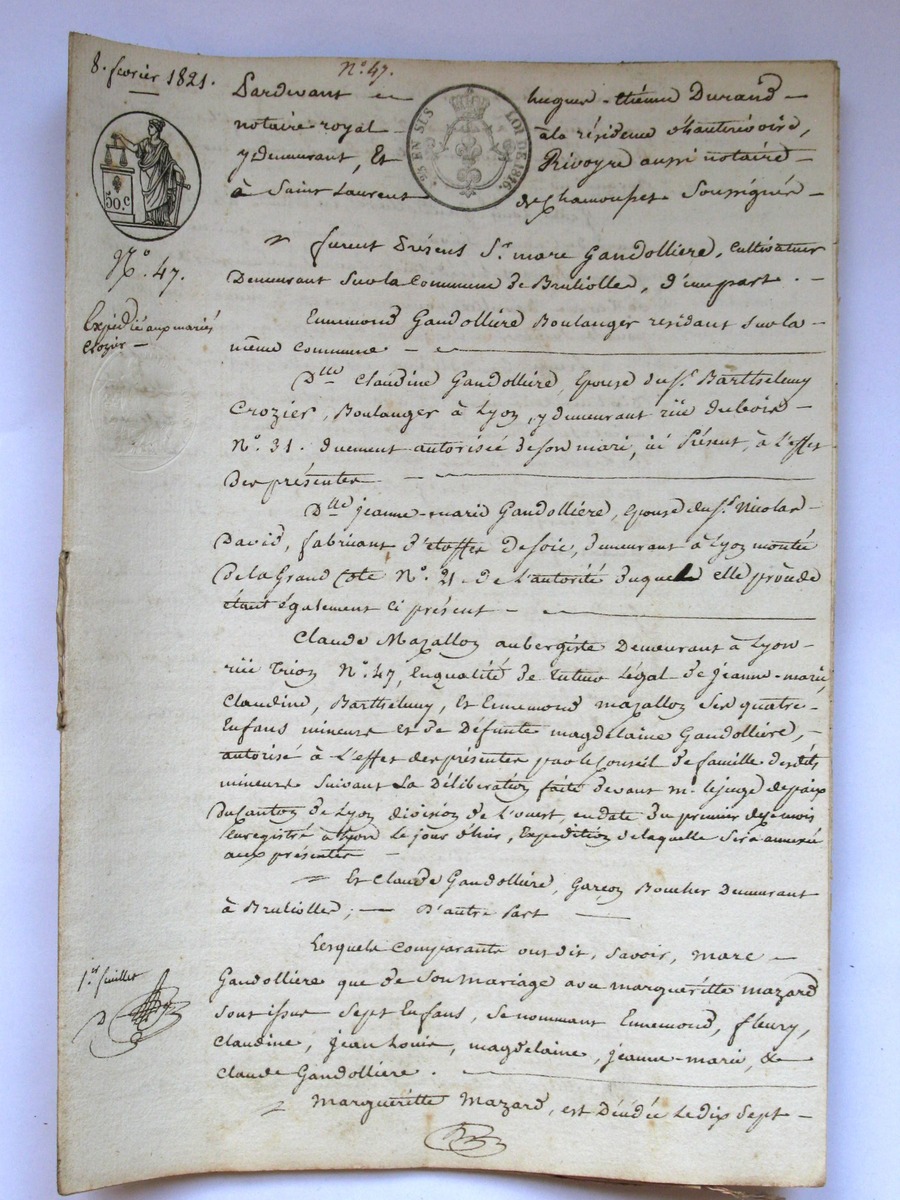 8. fevrier 1821.
N°. 47.
Pardevant en hugues-étienne Durand
notaire royal à la résidence d'hauterivoire,
y demeurant, Et Rivoyre aussi notaire
à Saint Laurent de Chamousset Soussignés
25 EN SUS LOI DE 1816.
50.c
N°. 47.
Expédié aux mariés
crozier
furent Présens Sr. marc Gandolliere, Cultivateur
Demeurant Sur la Commune de Brulliolles, d'une part.
Ennemond Gandollière Boulanger résidant Sur la
même Commune
Dlle Claudine Gandollière, Epouse du Sr. Barthélemy
Crozier, Boulanger à Lyon, y demeurant rüe dubois
N°. 31. duement autorisée de son mari, ici Présent, à L'effet
des présentes
Dlle jeanne-marie Gandollière, épouse du Sr. Nicolas
David, fabricant d'étoffes de soie, demeurant à Lyon montée
de la Grand Cote N°. 21. de L'autorité duquel elle procède
étant également ci présent
Claude Mazallon aubergiste Demeurant à Lyon
rüe trion N°. 47, en qualité de tuteur Légal de jeanne-marie,
Claudine, Barthélemy, Et Ennemond mazallon Ses quatre
Enfans mineurs et de Défunte magdelaine Gandollière,
autorisé à L'effet des présentes par le Conseil de famille desdits
mineurs Suivant La Délibération faite devant mr. le juge de paix
du Canton de Lyon division de L'ouest, en date du premier de ce mois
Enregistré à Lyon Le jour d'hier, Expédition de laquelle Sera annexée
aux présentes
Et Claude Gandollière, Garçon Boucher Demeurant
à Brulliolles; D'autre Part
Lesquels Comparants ont dit, Savoir, marc
Gandolliere que de Son mariage avec marguéritte mazard
Sont issus Sept Enfans, Se nommant Ennemond, fleury,
Claudine, jean Louis, magdelaine, jeanne-marie, &
Claude Gandolliere.
1er. feuillet
D
Marguéritte Mazard, est Décédée Le dix Sept